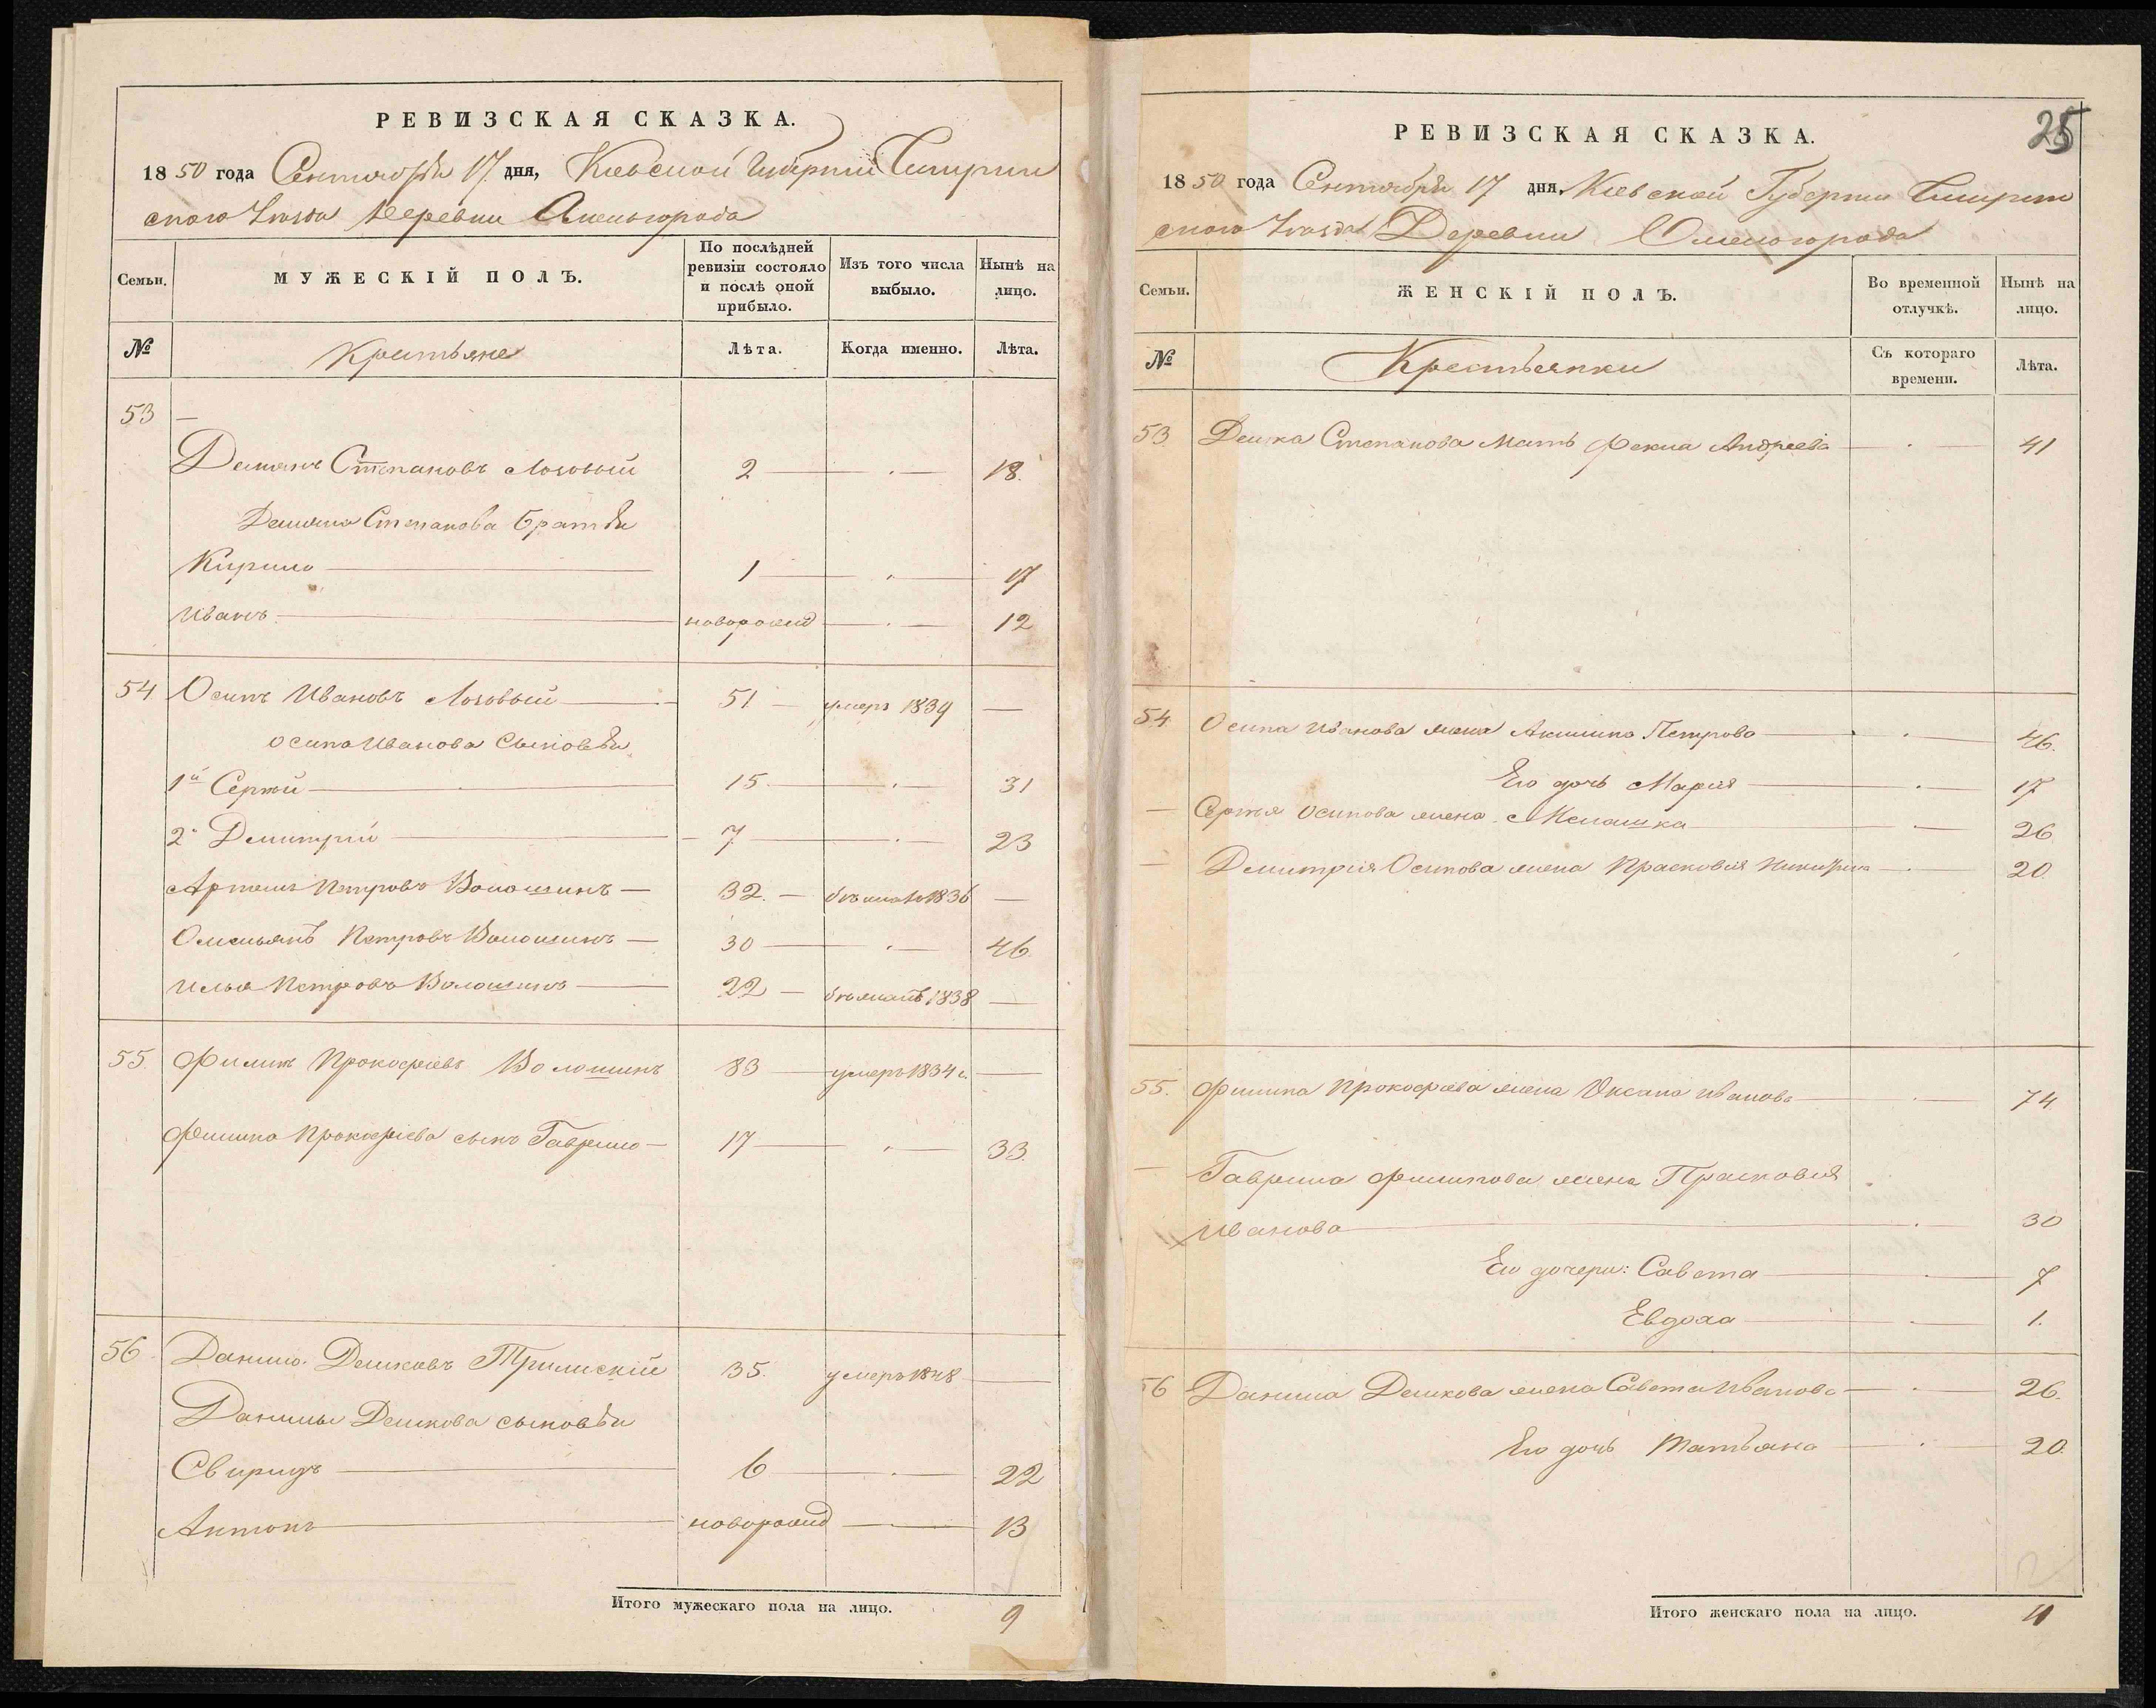 РЕВИЗСКАЯ СКАЗКА.
1850 года Сентября 17 дня, Киевской Губернии Липовец
ского Уезда деревни
Семьи. МУЖЕСКІЙ ПОЛЪ. По послѣдней ревизіи состояло и послѣ оной прибыло. Изъ того числа выбыло. Нынѣ на лицо.
№ Крестьяне Лѣта. Когда именно. Лѣта.
53 —
Демянъ Степановъ Лозовый 2 — · — 18.
Демяна Степанова Братья
Кирило — 1 — · — 17
Иванъ — новорожд — · — 12
54 Осипъ Ивановъ Лозовый — 51 — умеръ 1839 —
Осипа Иванова Сыновья
1й Сергій — 15 — · — 31
2й Дмитрій — 7 — · — 23
Артемъ Петровъ Волошинъ — 32. — бежалъ 1836 —
Омельянъ Петровъ Волошинъ — 30 — · — 46.
Илья Петровъ Волошинъ — 22 — бежалъ 1838 —
55. Филипъ Прокофіевъ Волошинъ 83 — умеръ 1834 г. —
Филипа Прокофіева сынъ Гаврило — 17 — · — 33.
56 Данило Демковъ 35. умеръ 1848 —
Данилы Демкова сыновья
Свиридъ — 6 — · — 22
Антонъ — новорожд — · — 13
Итого мужескаго пола на лицо. 9
25
РЕВИЗСКАЯ СКАЗКА.
1850 года Сентября 17 дня, Киевской Губернии
ского Уезда Деревни
Семьи. ЖЕНСКІЙ ПОЛЪ. Во временной отлучкѣ. Нынѣ на лицо.
№ Крестьянки Съ котораго времени. Лѣта.
53 Степанова Мать Фекла Андреева — · — 41
54 Осипа Иванова жена Акилина Петрова — · — 46.
Его дочь Марія — · — 17
— Сергія Осипова жена Мелашка — · — 26
— Дмитрія Осипова жена Прасковія — · — 20.
55. Филипа Прокофіева жена Оксана Иванова — · — 74.
— Гаврила Филипова жена Прасковія
Иванова — · 30
Его дочери: Савета — · — 7
Евдоха — · — 1.
56 Данила Демкова жена Савета Иванова — · — 26.
Его дочь Татьяна — · — 20.
Итого женскаго пола на лицо. 11